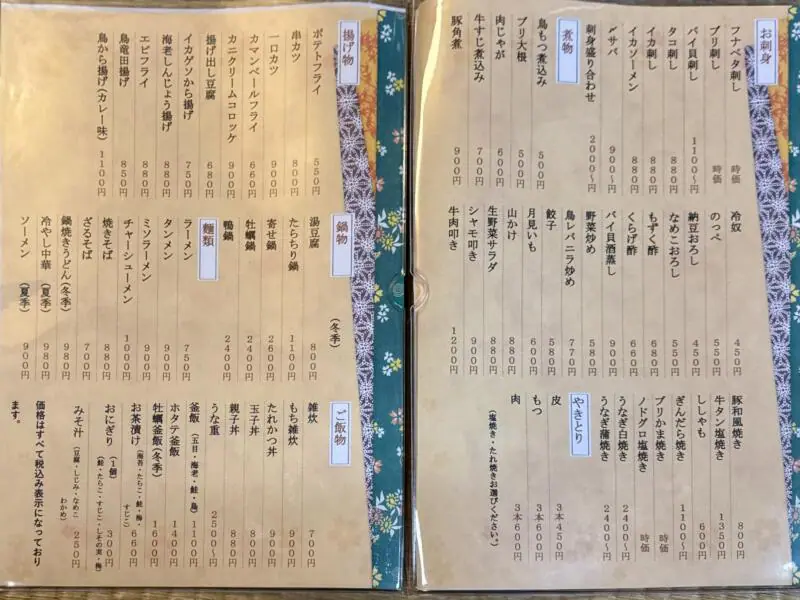 お刺身
フナベタ刺し 時価
ブリ刺し 時価
バイ貝刺し 1100〜円
タコ刺し 880円
イカ刺し 880円
イカソーメン 880円
〆サバ 900〜円
刺身盛り合わせ 2000〜円
煮物
鳥もつ煮込み 500円
ブリ大根 500円
肉じゃが 600円
牛すじ煮込み 700円
豚角煮 900円
冷奴 450円
のっぺ 550円
納豆おろし 450円
なめこおろし 550円
もずく酢 680円
くらげ酢 660円
バイ貝酒蒸し 900円
野菜炒め 580円
鳥レバニラ炒め 770円
餃子 580円
月見いも 600円
山かけ 880円
生野菜サラダ 880円
シャモ叩き 900円
牛肉叩き 1200円
豚和風焼き 800円
牛タン塩焼き 1350円
ししゃも 600円
ぎんだら焼き 1100〜円
ブリかま焼き 時価
ノドグロ塩焼き 時価
うなぎ白焼き 2400〜円
うなぎ蒲焼き 2400〜円
やきとり
皮 3本450円
もつ 3本600円
肉 3本600円
(塩焼き・たれ焼きお選びください。)
揚げ物
ポテトフライ 550円
串カツ 800円
一口カツ 900円
カマンベールフライ 660円
カニクリームコロッケ 900円
揚げ出し豆腐 680円
イカゲソから揚げ 750円
海老しんじょう揚げ 880円
エビフライ 880円
鳥竜田揚げ 850円
鳥から揚げ(カレー味) 1100円
鍋物
(冬季)
湯豆腐 800円
たらちり鍋 1100円
寄せ鍋 2600円
牡蠣鍋 2400円
鴨鍋 2400円
麺類
ラーメン 750円
タンメン 900円
ミソラーメン 900円
チャーシューメン 1000円
焼きそば 880円
ざるそば 700円
鍋焼きうどん(冬季) 980円
冷やし中華 (夏季) 980円
ソーメン (夏季) 900円
ご飯物
雑炊 700円
もち雑炊 900円
たれかつ丼 900円
玉子丼 800円
親子丼 880円
うな重 2500〜円
釜飯 (五目・海老・鮭・鳥) 1100円
ホタテ釜飯 1400円
牡蠣釜飯(冬季) 1600円
お茶漬け (海苔・たらこ・鮭・梅・すじこ) 660円
おにぎり (1個) (鮭・たらこ・すじこ・しその実・梅) 300円
みそ汁 (豆腐・しじみ・なめこ わかめ) 250円
価格はすべて税込み表示になっており
ます。